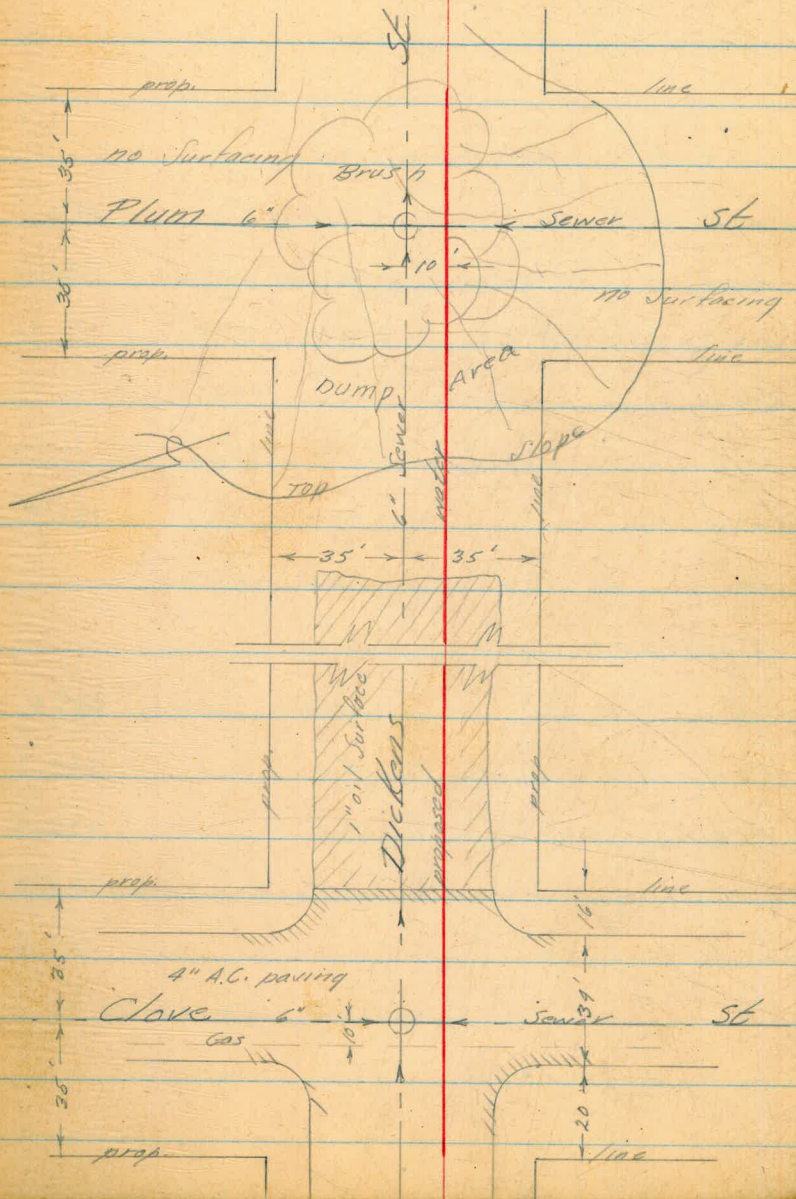 St
prop. line
35'
no Surfacing
Brush
Plum 6" Sewer St
10'
35'
no Surfacing
prop. line
Dump Area
line
6" Sewer
water
line
Top Slope
35' 35'
1" oil Surface
Dickens
proposed
prop.
prop
prop. line
16'
35'
4" A.C. paving
34'
Clove 6" Sewer St
Gas
10'
35'
20
prop. line